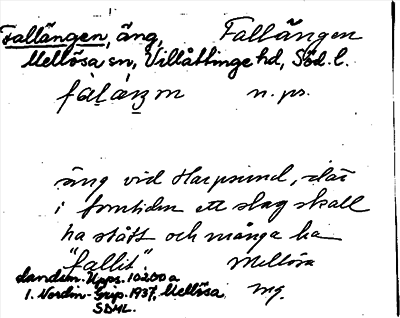 Fallängen, äng, Fallängen
Mellösa sn, Villåttinge hd, Söd. l.
fàláŋ m n. ps.
äng vid Harpsund, där
i forntiden ett slag skall
ha stått och många ha
"fallit". Mellösa
Landsm. Upps. 10200a mg.
I. Nordin-Grip. 1937, Mellösa
SDML.